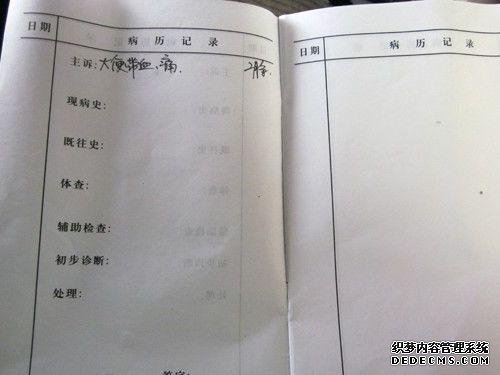 日期 病历记录
主诉:大便带血、痛.
现病史:
既往史:
体查:
辅助检查:
初步诊断:
处理:
日期 病历记录
织梦内容管理系统
DEDECMS.COM